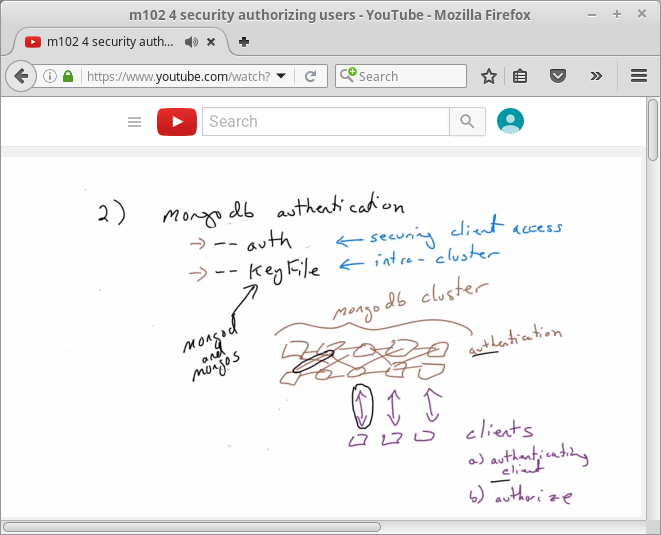 m102 4 security authorizing users - YouTube - Mozilla Firefox
m102 4 security auth...
https://www.youtube.com/watch?
Search
Search
2) mongodb authentication
→ -- auth ← securing client access
→ -- KeyFile ← intra-cluster
mongod
and
mongos
mongodb cluster
authentication
clients
a) authenticating
client
b) authorize